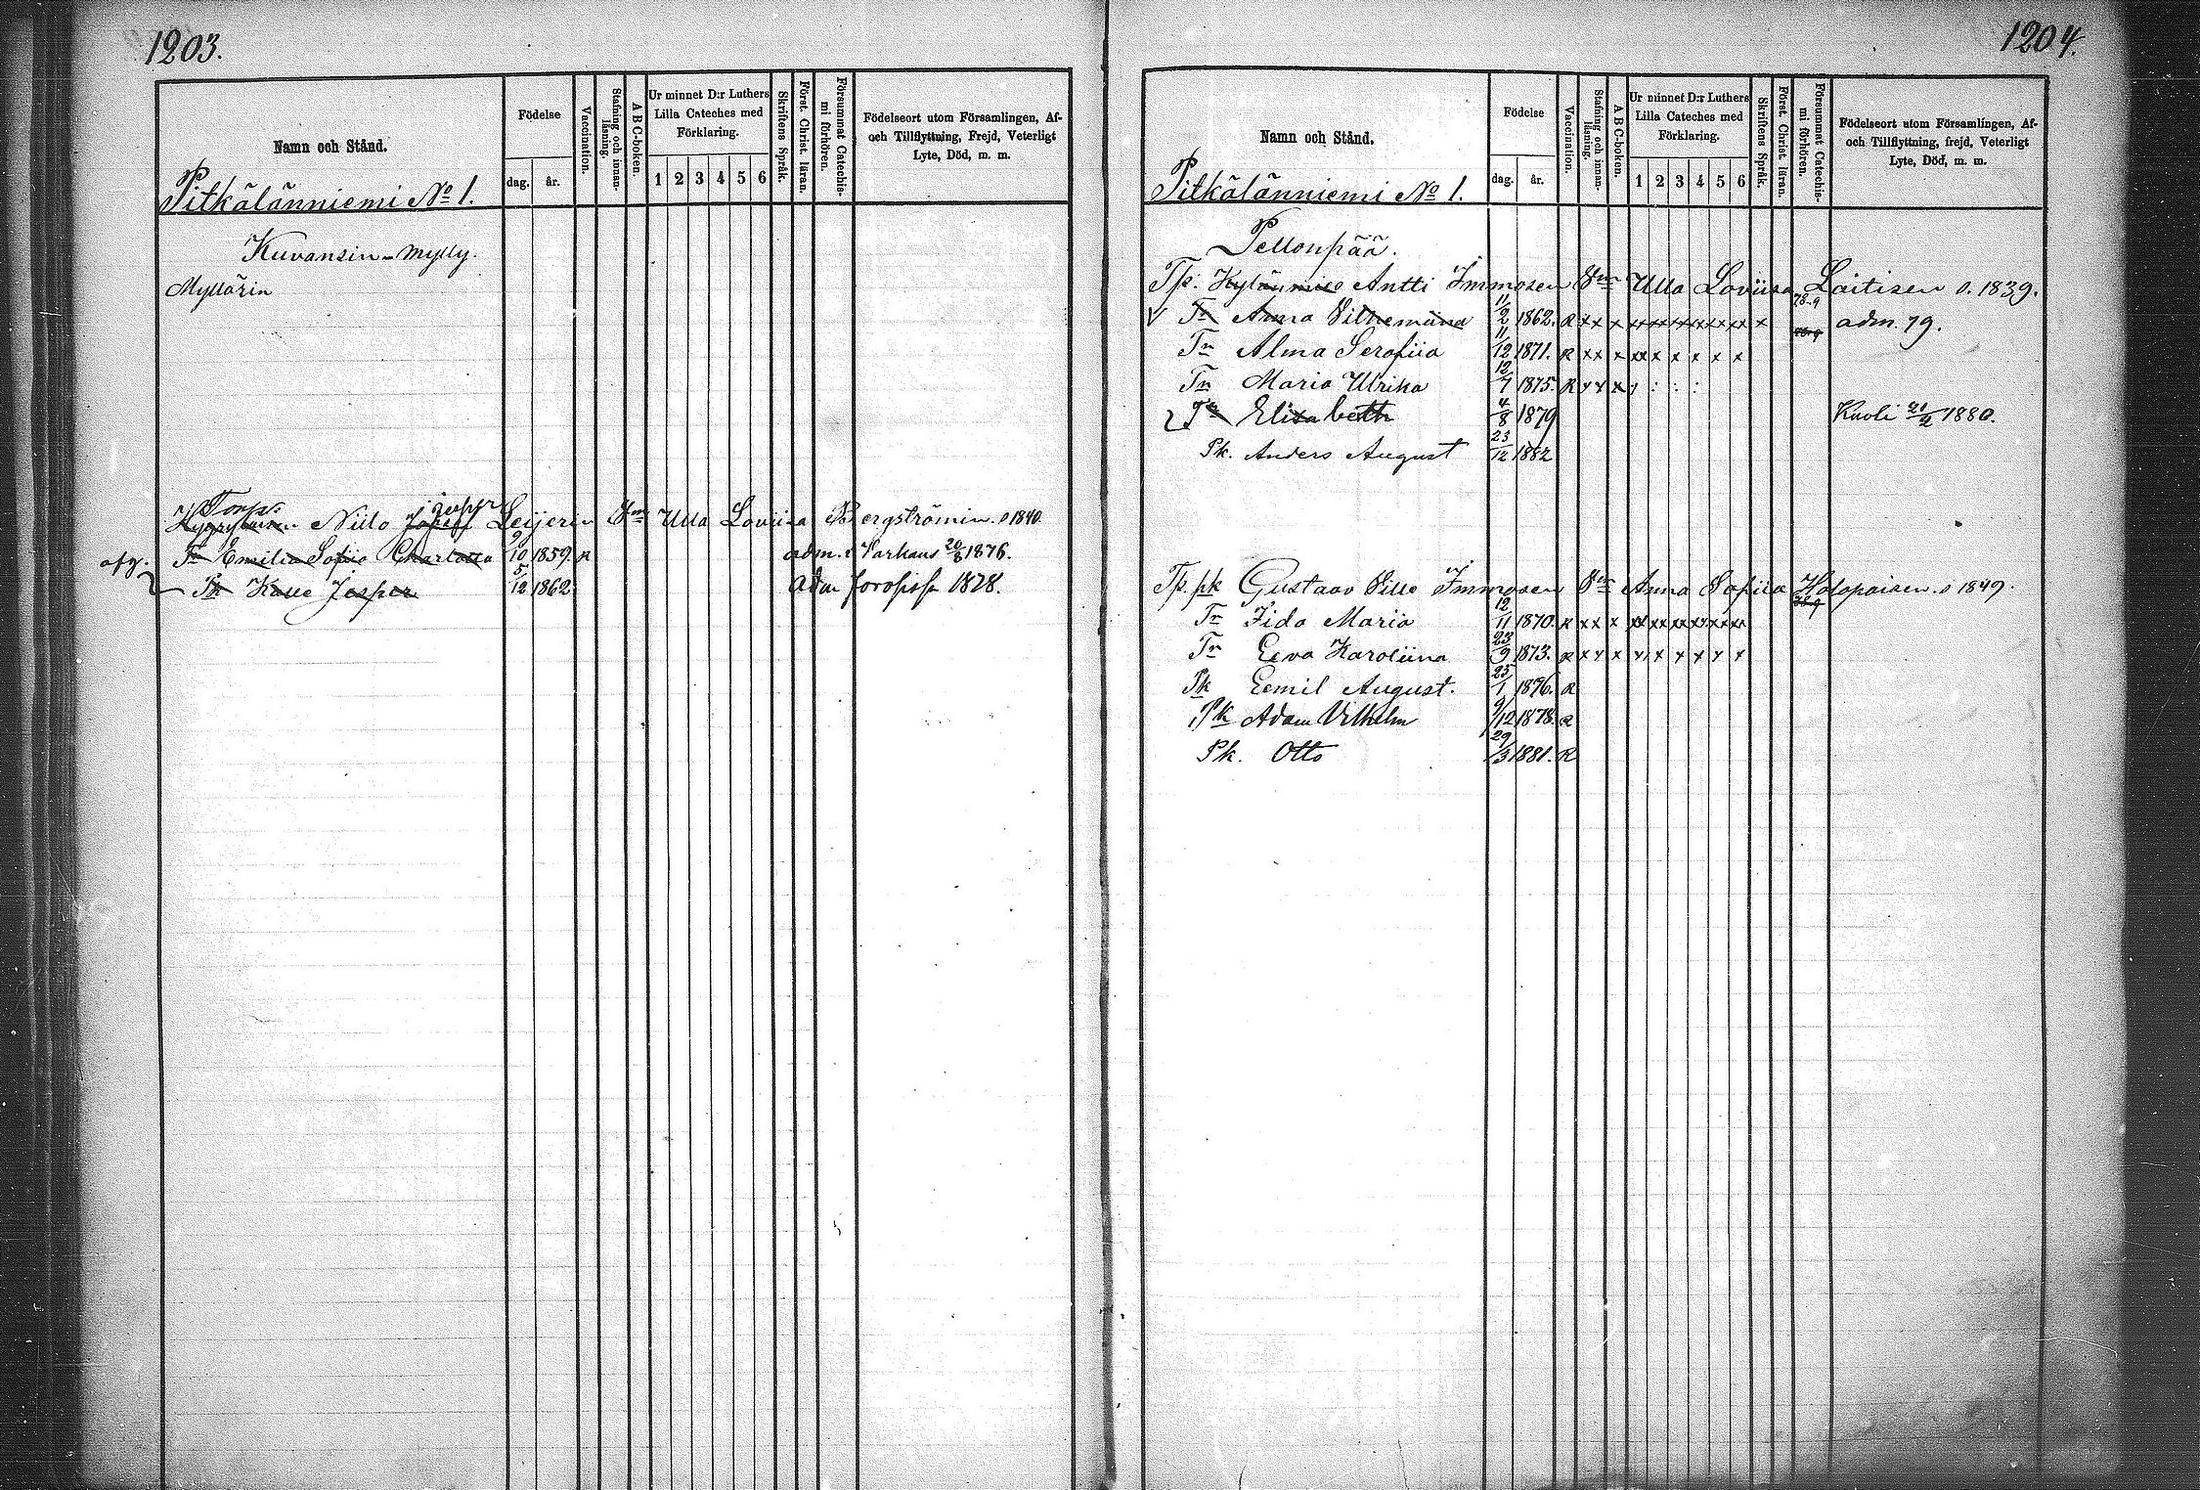 1203.
Namn och Stånd.
Födelse
dag. år.
Vaccination.
Stafning och innan-läsning.
A B C-boken.
Ur minnet D:r Luthers Lilla Cateches med Förklaring.
1 2 3 4 5 6
Skriftens Språk.
Först. Christ. läran.
Försummat Catechis-mi förhören.
Födelseort utom Församlingen, Af- och Tillflyttning, Frejd, Veterligt Lyte, Död, m. m.
Pitkälänniemi No 1.
Kuvansin-mylly.
Myllärin
Torp. Niilo Leijerin Vm Ulla Loviisa Bergströmin. s 1840.
afg. Tr Emilia Sofiia Charlotta 9/10 1859. R adm. i Varkaus 20/8 1876.
Pk Kalle Jesper 5/12 1862 adm Joroisissa 1878.
1204.
Namn och Stånd.
Födelse
dag. år.
Vaccination.
Stafning och innan-läsning.
A B C-boken.
Ur minnet D:r Luthers Lilla Cateches med Förklaring.
1 2 3 4 5 6
Skriftens Språk.
Först. Christ. läran.
Försummat Catechis-mi förhören.
Födelseort utom Församlingen, Af- och Tillflyttning, frejd, Veterligt Lyte, Död, m. m.
Pitkälänniemi No 1.
Pellonpää.
Tp. Antti Immosen Vm Ulla Loviisa Laitisen s. 1839.
Tr Anna Vilhemiina 11/2 1862. R xx x xx xx xx xx xx xx x 78-9 adm. 79.
Tr Alma Serafiia 11/12 1871. R xx x xx x x x x x
Tr Maria Ulrika 12/7 1875. R x x x
Tr Elisabeth 4/8 1879 Kuoli 21/2 1880.
Pk. Anders August 23/12 1882
Tp. pk Gustaav Ville Immosen Vm Anna Sofiia Holopaisen. s 1849.
Tr Iida Maria 12/11 1870. R xx x xx xx xx xx xx xx
Tr Eeva Karoliina 23/9 1873. R x x x x x x x x x
Pk Eemil August. 25/1 1876. R
Pk Adam Vilhelm 9/12 1878. R
Pk. Otto 29/3 1881. R